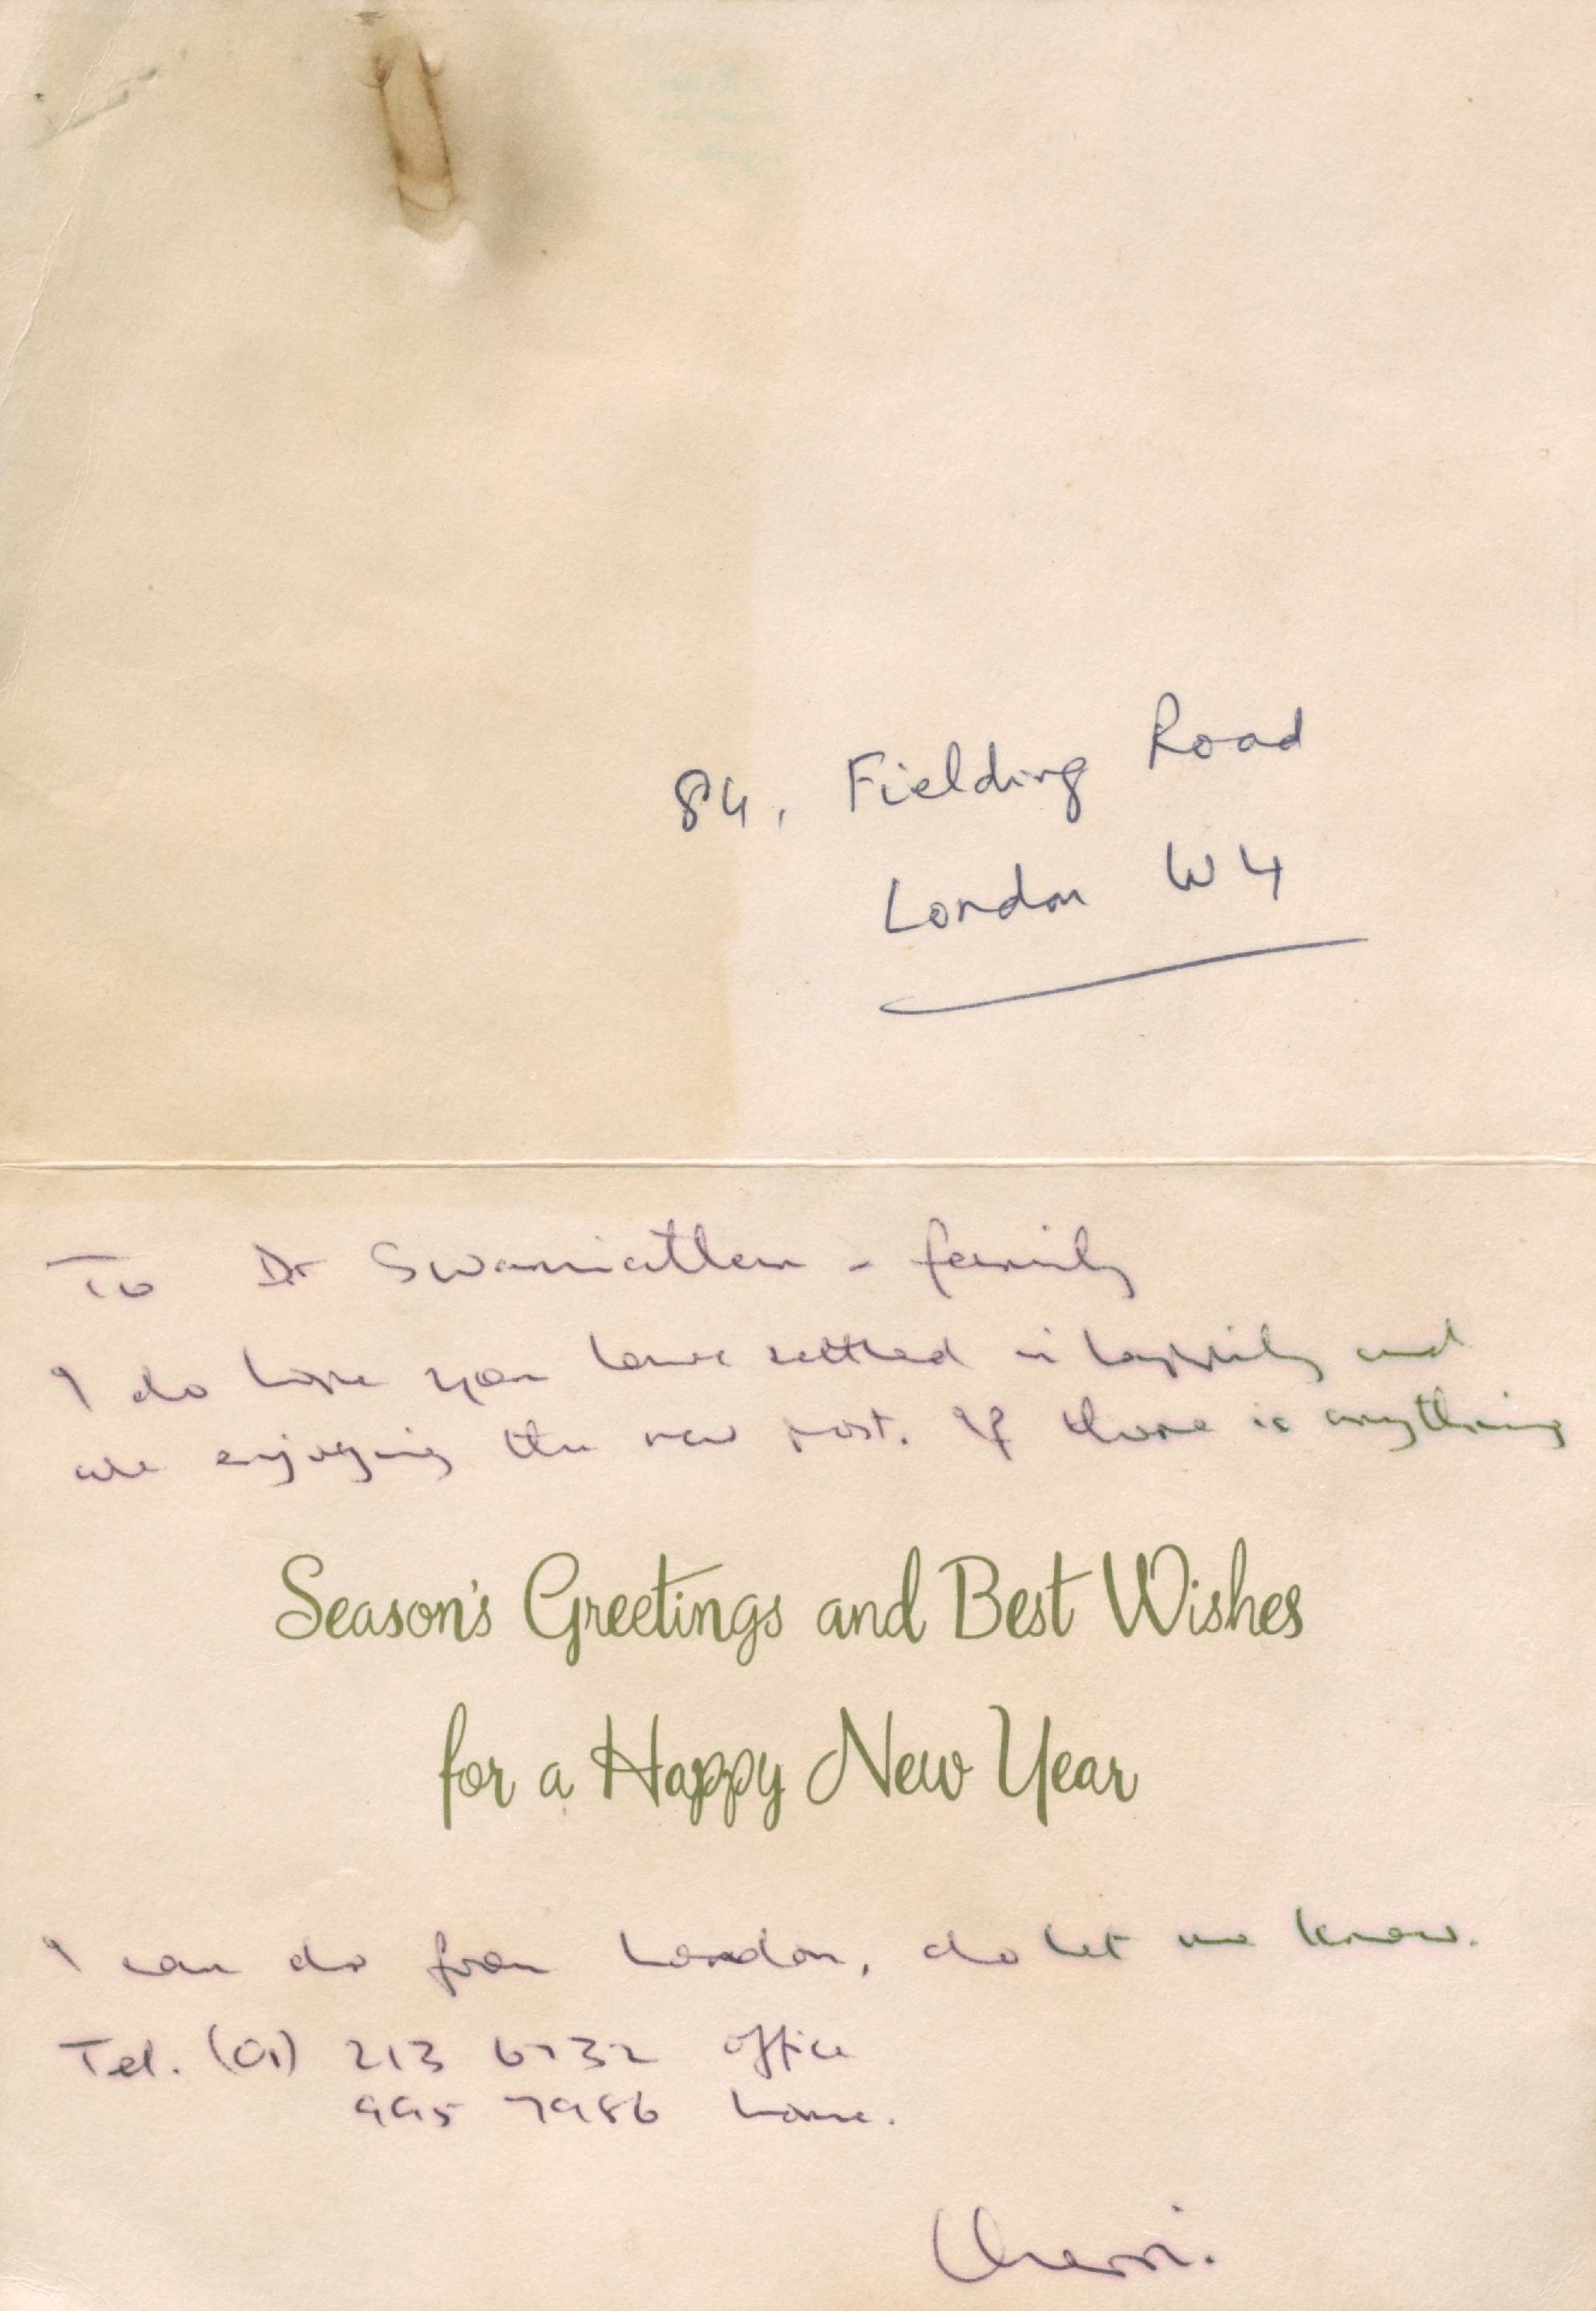 84, Fielding Road
London W4
To Dr Swaminathan - family
I do hope you have settled in happily and
are enjoying the new post. If there is anything
Season's Greetings and Best Wishes
for a Happy New Year
I can do from London, do let me know.
Tel. (01) 213 6732 office
995 7986 home.